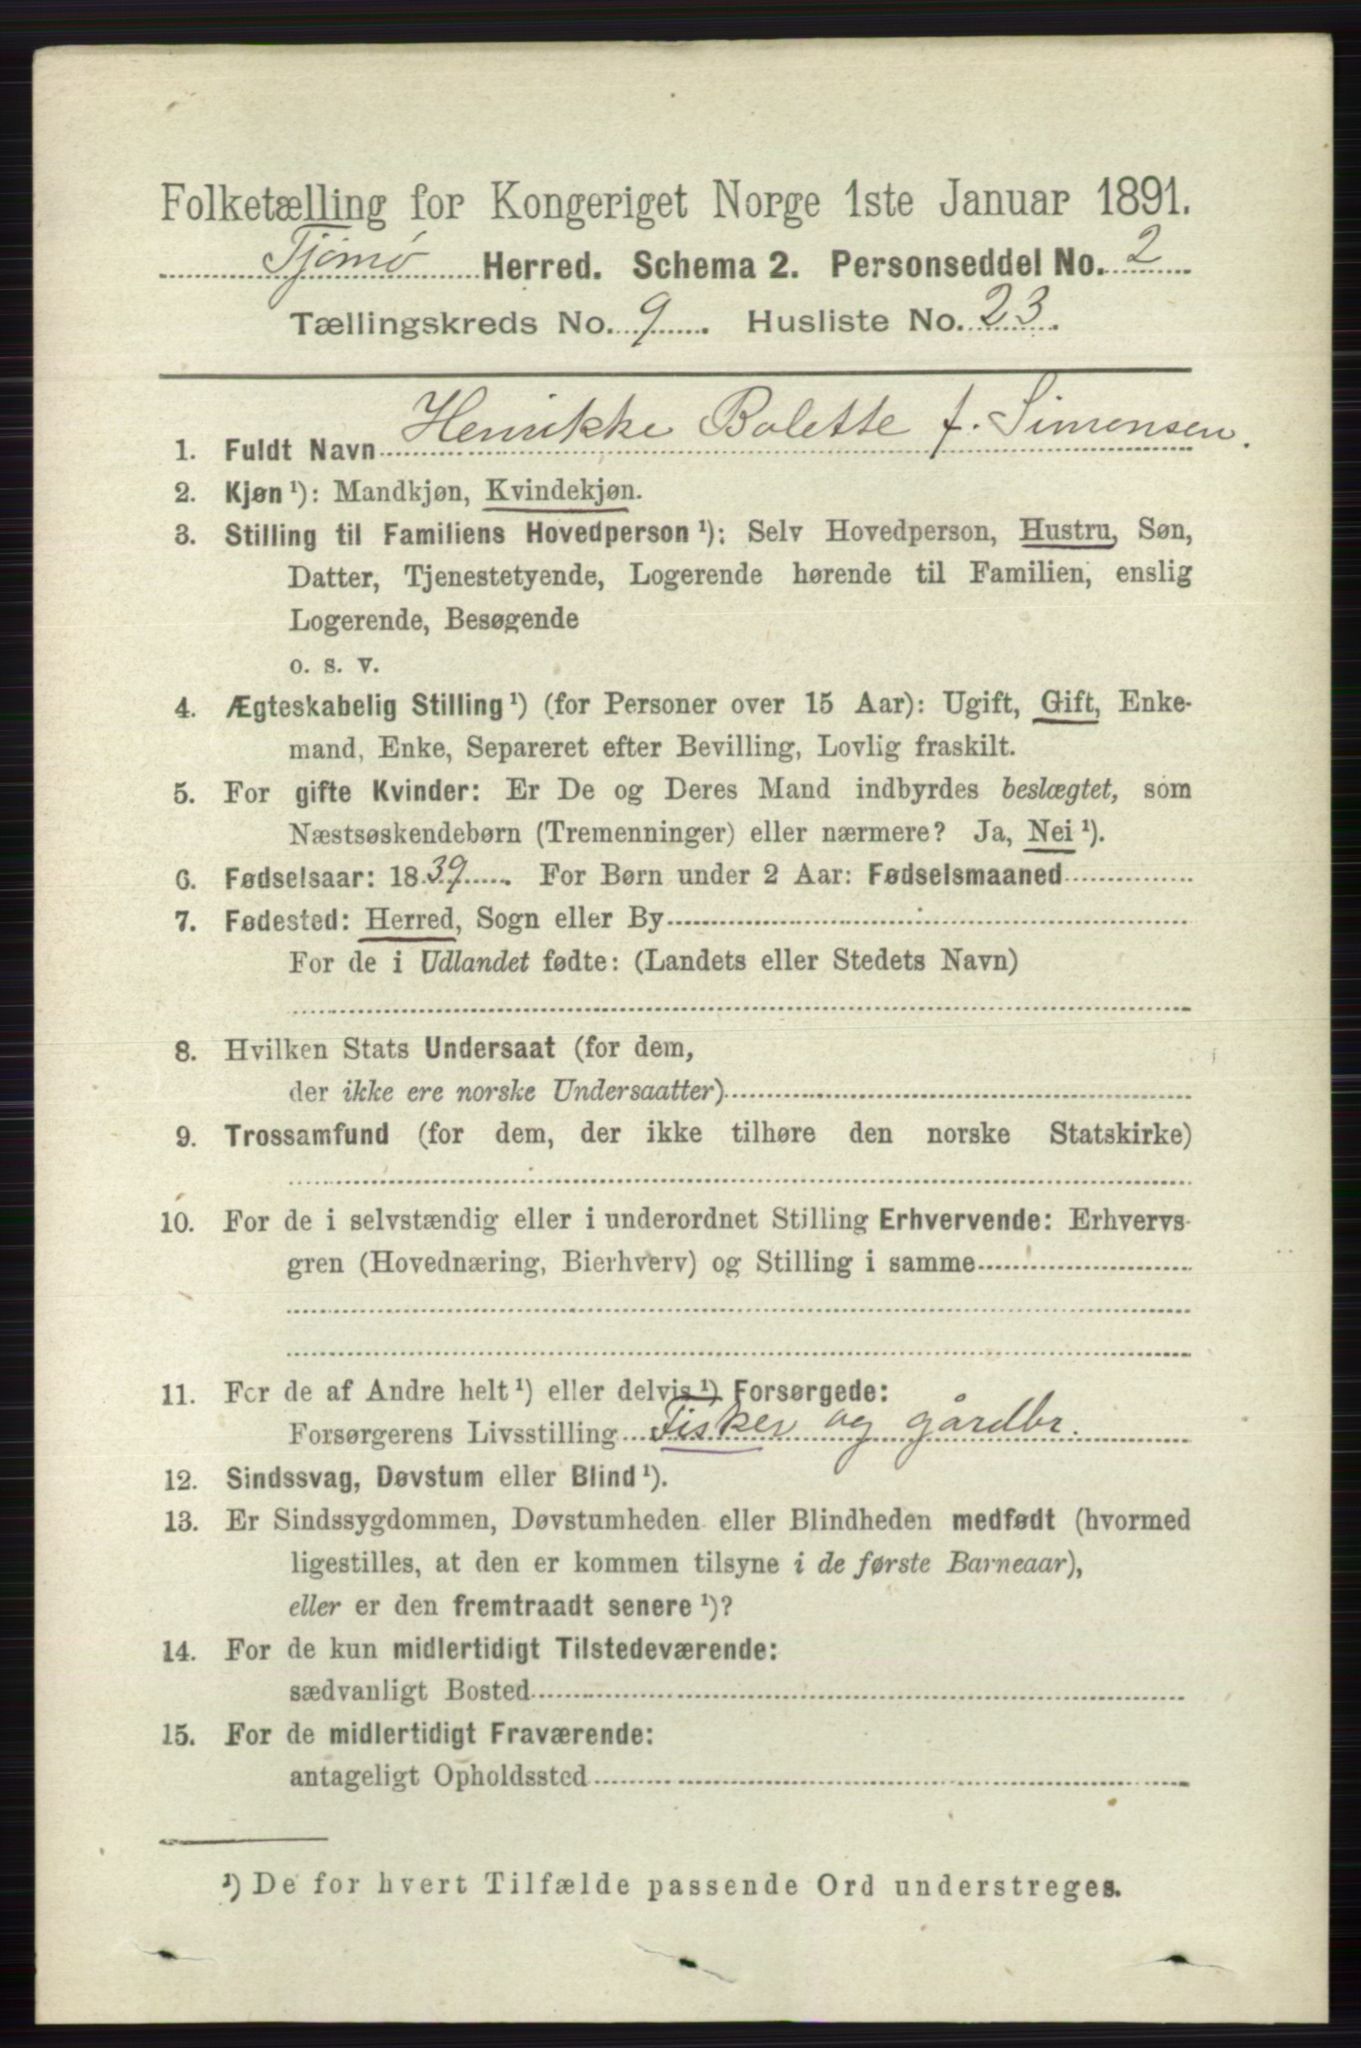 Folketælling for Kongeriget Norge 1ste Januar 1891.
Tjømø Herred. Schema 2. Personseddel No. 2
Tællingskreds No. 9. Husliste No. 23.
1. Fuldt Navn Henrikke Bolette f. Simensen.
2. Kjøn ¹): Mandkjøn, Kvindekjøn.
3. Stilling til Familiens Hovedperson ¹): Selv Hovedperson, Hustru, Søn,
Datter, Tjenestetyende, Logerende hørende til Familien, enslig
Logerende, Besøgende
o. s. v.
4. Ægteskabelig Stilling ¹) (for Personer over 15 Aar): Ugift, Gift, Enke-
mand, Enke, Separeret efter Bevilling, Lovlig fraskilt.
5. For gifte Kvinder: Er De og Deres Mand indbyrdes beslægtet, som
Næstsøskendebørn (Tremenninger) eller nærmere? Ja, Nei ¹).
6. Fødselsaar: 1839. For Børn under 2 Aar: Fødselsmaaned
7. Fødested: Herred, Sogn eller By
For de i Udlandet fødte: (Landets eller Stedets Navn)
8. Hvilken Stats Undersaat (for dem,
der ikke ere norske Undersaatter)
9. Trossamfund (for dem, der ikke tilhøre den norske Statskirke)
10. For de i selvstændig eller i underordnet Stilling Erhvervende: Erhvervs-
gren (Hovednæring, Bierhverv) og Stilling i samme
11. For de af Andre helt ¹) eller delvis ¹) Forsørgede:
Forsørgerens Livsstilling Fisker og gårdbr.
12. Sindssvag, Døvstum eller Blind ¹).
13. Er Sindssygdommen, Døvstumheden eller Blindheden medfødt (hvormed
ligestilles, at den er kommen tilsyne i de første Barneaar),
eller er den fremtraadt senere ¹)?
14. For de kun midlertidigt Tilstedeværende:
sædvanligt Bosted
15. For de midlertidigt Fraværende:
antageligt Opholdssted
¹) De for hvert Tilfælde passende Ord understreges.